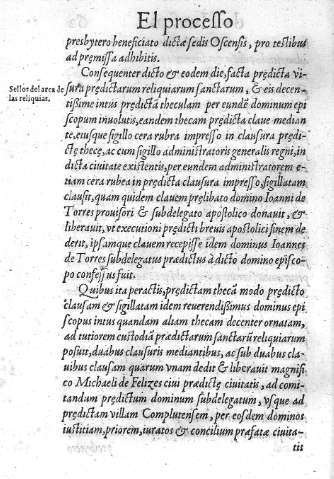 El processo
presbytero beneficiato dictæ sedis Oscensis, pro testibus
ad premissa adhibitis.
Consequenter dicto & eodem die, facta prędicta vi-
Sellos del arca de
las reliquias.
sura prędictarum reliquiarum sanctarum, & eis decen-
tissime intus prędictā theculam per eundē dominum epi
scopum inuolutis, eandem thecam prędicta claue median
te, eiusque sigillo cera rubra impresso in clausura prędi-
ctę thecę, ac cum sigillo administratoris generalis regni, in
dicta ciuitate existentis, per eundem administratorem e-
tiam cera rubea in prędicta clausura impresso sigillatam
clausit, quam quidem clauem pręlibato domino Ioanni de
Torres prouisori & subdelegato apostolico donauit, &
liberauit, vt executioni prędicti breuis apostolici finem de
derit, ipsamque clauem recepisse idem dominus Ioannes
de Torres subdelegatus prædictus à dicto domino episco-
po confessus fuit.
Quibus ita peractis, prędictam thecā modo prędicto
clausam & sigillatam idem reuerendissimus dominus epi
scopus intus quandam aliam thecam decenter ornatam,
ad tutiorem custodiā prædictarum sanctarū reliquiarum
posuit, duabus clausuris mediantibus, ac sub duabus cla-
uibus clausam quarum vnam dedit & liberauit magnifi
co Michaeli de Felizes ciui prædictę ciuitatis, ad comi-
tandam prędictum dominum subdelegatum, vsque ad
prędictam villam Complutensem, per eosdem dominos
iustitiam, priorem, iuratos & concilium præfatæ ciuita-
tis